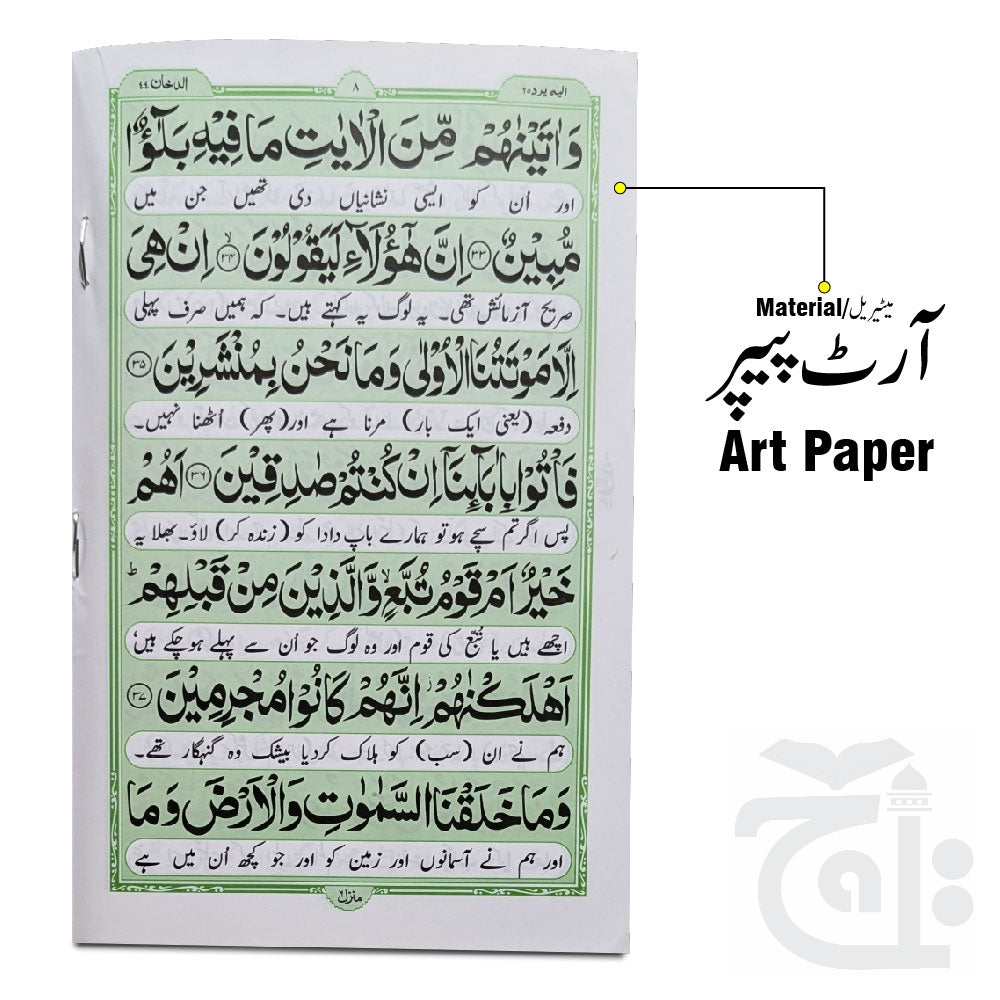 الیه یرد ۲۵
۸
الدخان ۴۴
وَاٰتَيْنٰهُمْ مِّنَ الْاٰيٰتِ مَا فِيْهِ بَلٰٓؤٌا
اور اُن کو ایسی نشانیاں دی تھیں جن میں
مُّبِيْنٌ ﴿۳۳﴾ اِنَّ هٰٓؤُلَآءِ لَيَقُوْلُوْنَ ۙ﴿۳۴﴾ اِنْ هِىَ
صریح آزمائش تھی۔ یہ لوگ یہ کہتے ہیں۔ کہ ہمیں صرف پہلی
اِلَّا مَوْتَتُنَا الْاُوْلٰى وَمَا نَحْنُ بِمُنْشَرِيْنَ ﴿۳۵﴾
دفعہ (یعنی ایک بار) مرنا ہے اور(پھر) اُٹھنا نہیں۔
فَاْتُوْا بِاٰبَآئِنَآ اِنْ كُنْتُمْ صٰدِقِيْنَ ﴿۳۶﴾ اَهُمْ
پس اگر تم سچے ہو تو ہمارے باپ دادا کو (زندہ کر) لاؤ۔ بھلا یہ
خَيْرٌ اَمْ قَوْمُ تُبَّعٍ ۙ وَّالَّذِيْنَ مِنْ قَبْلِهِمْ ؕ
اچھے ہیں یا تُبّع کی قوم اور وہ لوگ جو اُن سے پہلے ہو چکے ہیں
اَهْلَكْنٰهُمْ ۫ اِنَّهُمْ كَانُوْا مُجْرِمِيْنَ ﴿۳۷﴾
ہم نے ان (سب) کو ہلاک کردیا بیشک وہ گنہگار تھے۔
وَمَا خَلَقْنَا السَّمٰوٰتِ وَالْاَرْضَ وَمَا
اور ہم نے آسمانوں اور زمین کو اور جو کچھ اُن میں ہے
منزل ۶
Material/میٹیریل
آرٹ پیپر
Art Paper